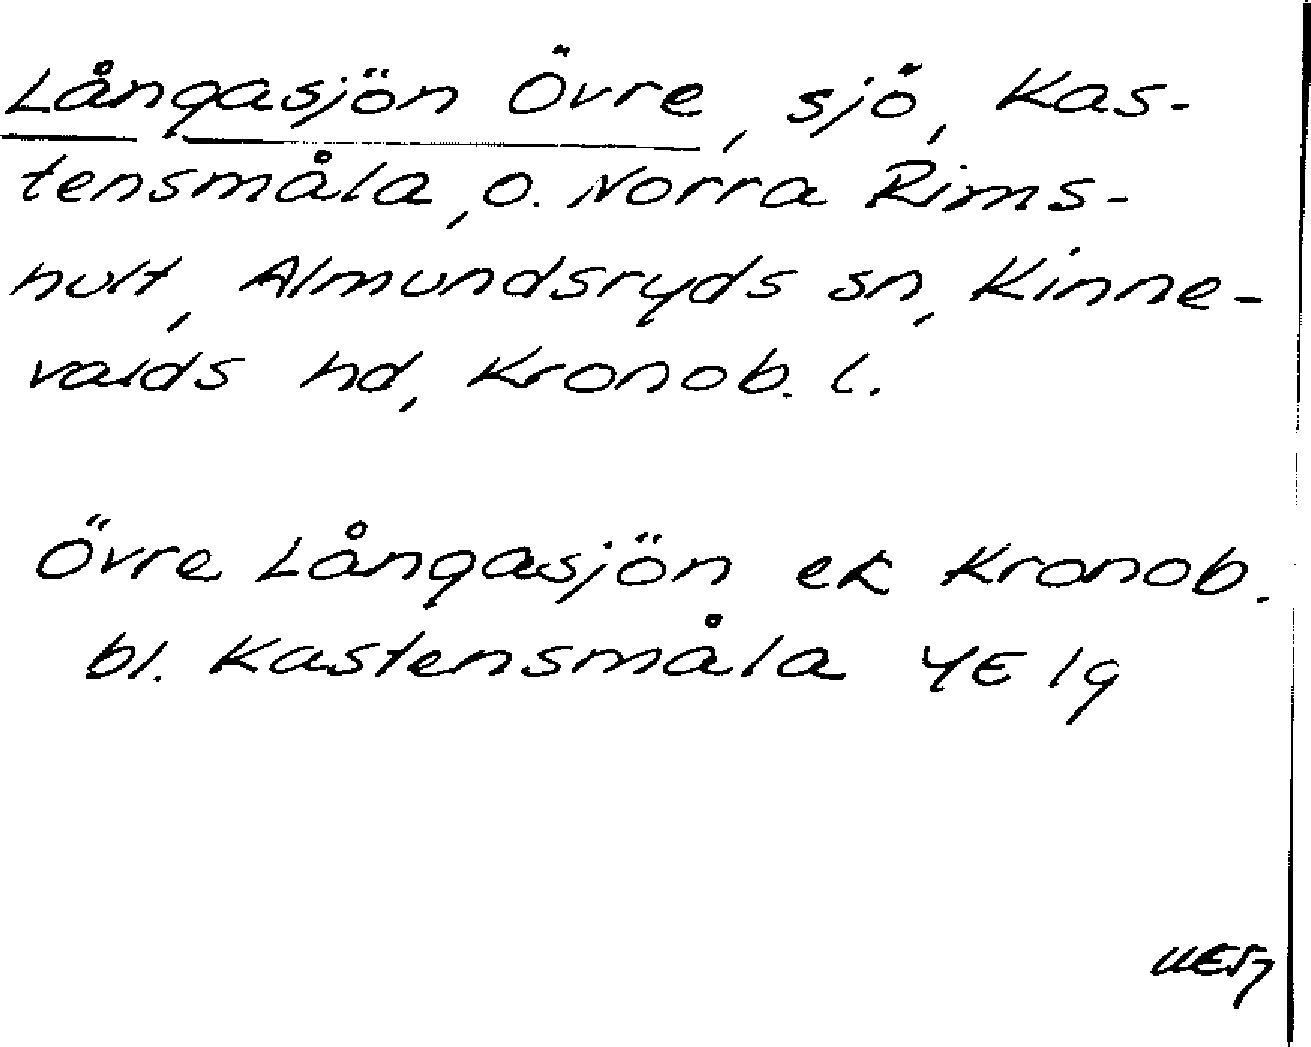 Långasjön Övre, sjö, Kas-
tensmåla, o. Norra Rims-
hult, Almundsryds sn, Kinne-
valds hd, Kronob. l.
Övre Långasjön ek Kronob.
bl. Kastensmåla 4E 1g